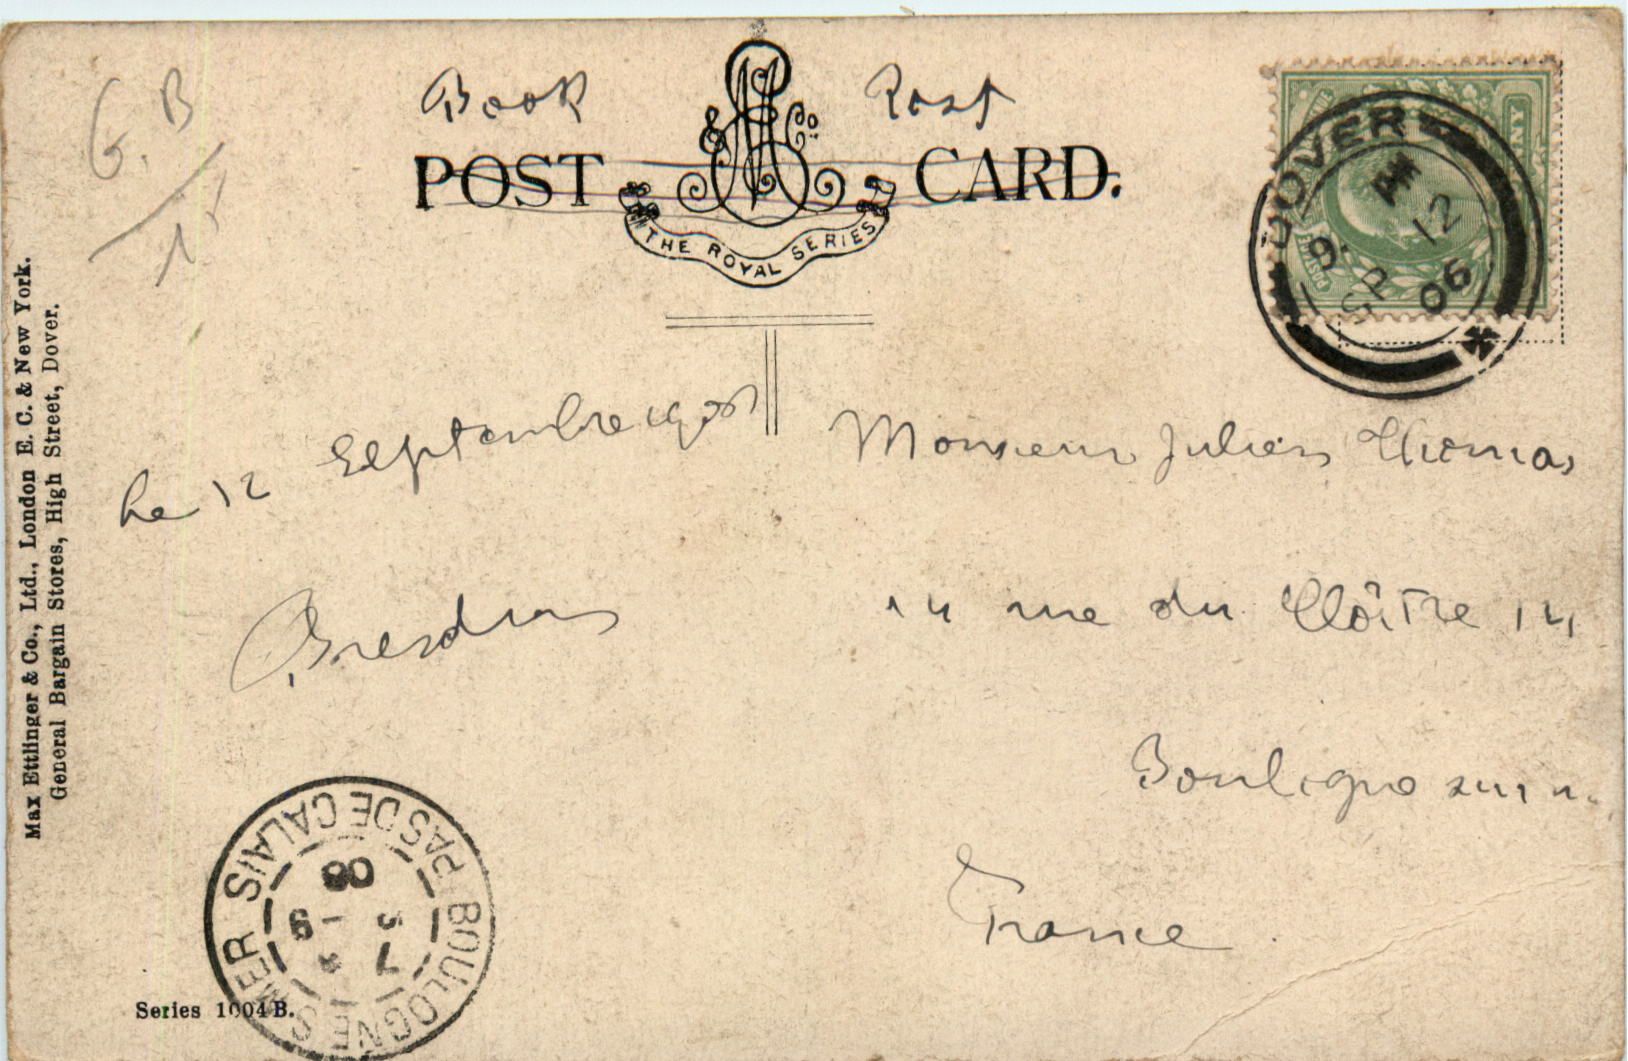 G. B
15
Book Post
& Co.
POST CARD.
THE ROYAL SERIES
DOVER
AM
9.
SP 12
06
Max Ettlinger & Co., Ltd., London E. C. & New York.
General Bargain Stores, High Street, Dover.
Le 12 Septembre
Monsieur Julien Thomas
14 rue du Cloître 14
Boulogne sur m.
France.
BOULOGNE S MER PAS DE CALAIS
Series 1004 B.